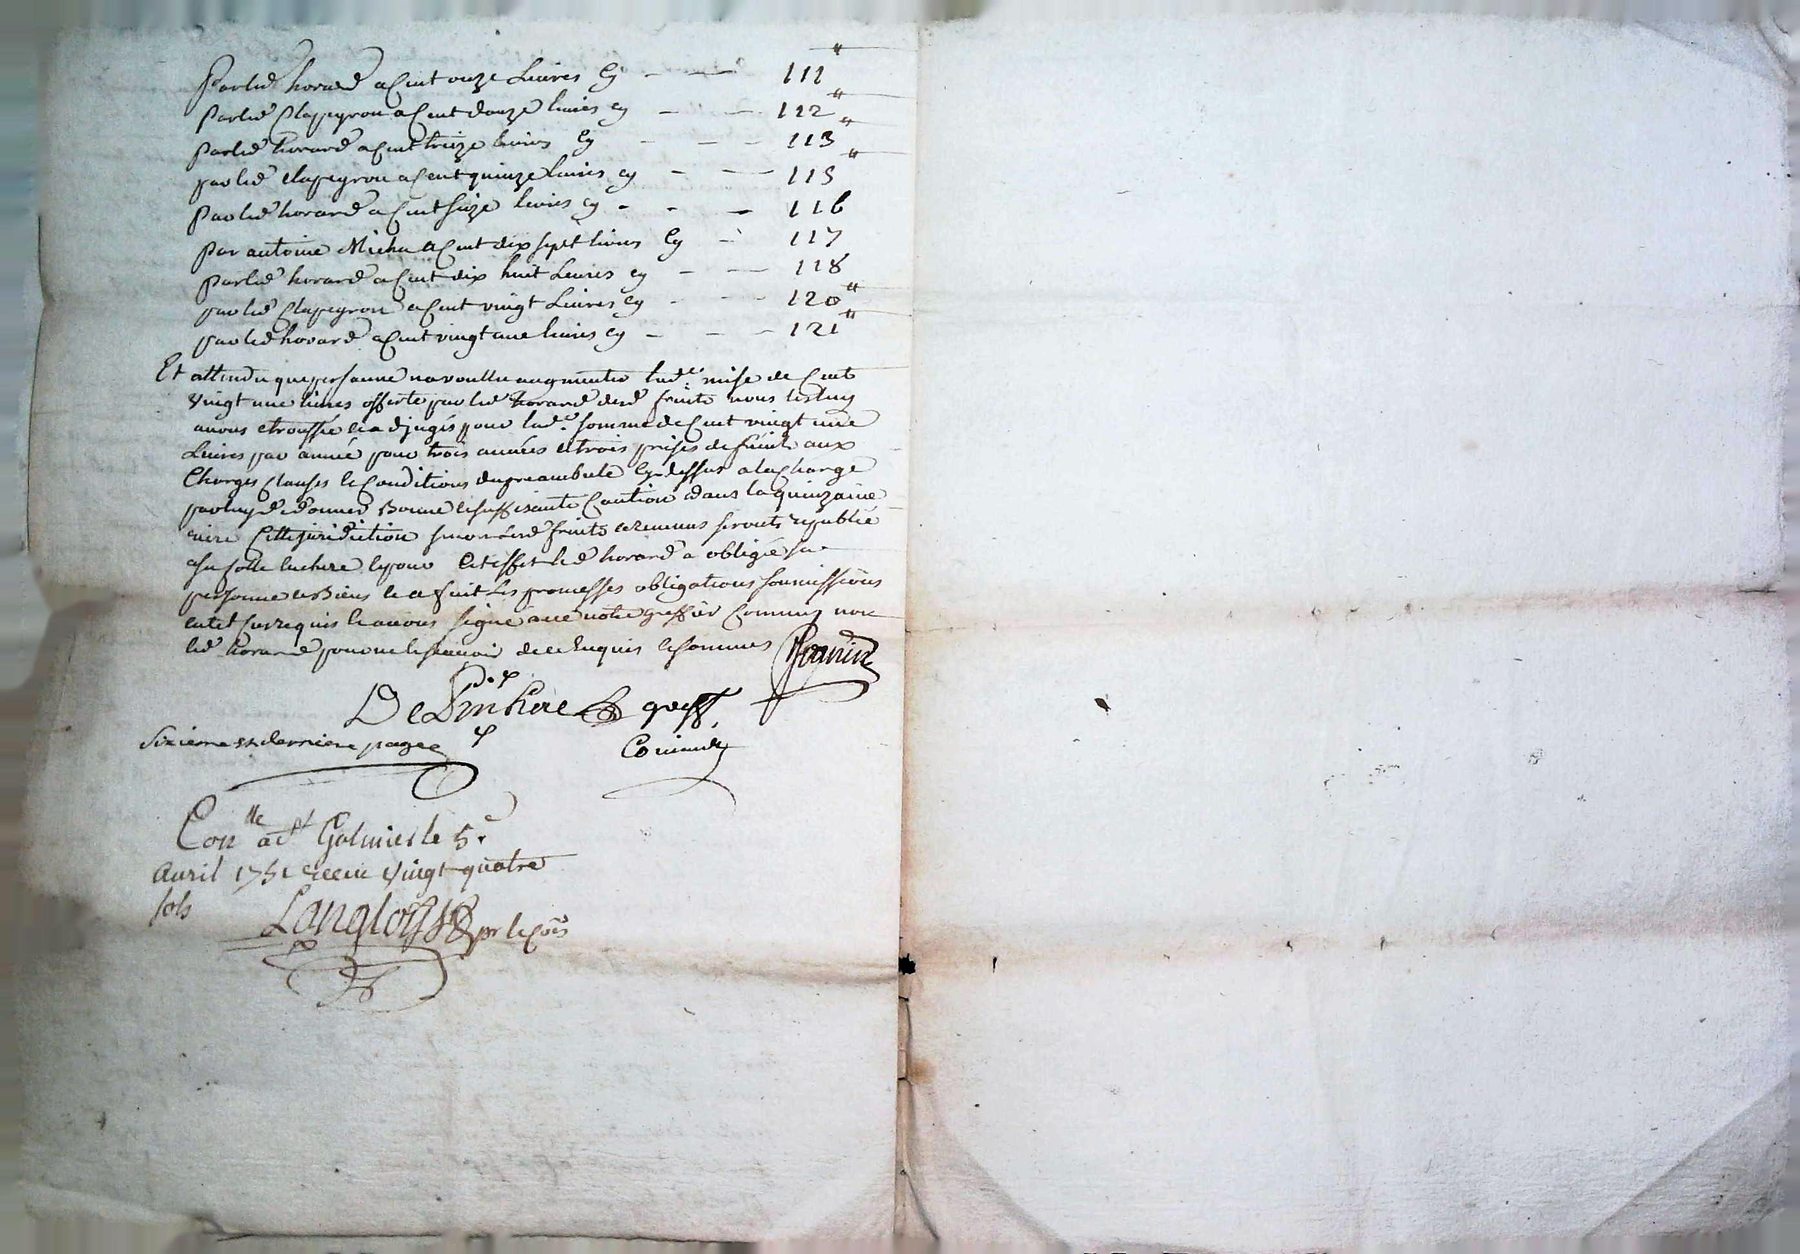 Par led horard a Cent onze Livres Cy - - 111"
Par led Clapeyron a Cent douze livres cy - - 112"
par led horard a Cent treize livres Cy - - - 113"
par led Clapeyron a Cent quinze Livres cy - - 115"
par led horard a Cent seize livres cy - - - 116
par antoine Micha a Cent dix sept livres Cy - 117
par led horard a Cent dix huit Livres cy - - 118
par led Clapeyron a Cent vingt Livres cy - - 120"
par led horard a Cent vingt une livres cy - - - 121"
Et attendu que personne na voullu augmenter lade mise de Cent
vingt une livres offerte par led horard desd fruits nous les luy
avons etroussé et adjugés pour lade somme de Cent vingt une
Livres par année pour trois années et trois prises de fruits aux
Charges Clauses et Conditions du preambule Cy dessus a la charge
par luy de donner Bonne et suffisante Caution dans la quinzaine
cette juridiction sinon lesd fruits et revenus seronts republié
a sa folle enchere et pour Cet effet led horard a obligé sa
personne et Biens et a fait Les promesses obligations soumissions
requis et avons signé avec notre greffier Commis non
led horard pour ne le sçavoir de ce Enquis et sommes
greff.
Sixieme et derniere page Commis
Conlle a st Galmier le 5e
avril 1751 Receu vingt quatre
sols
Langlois pr le